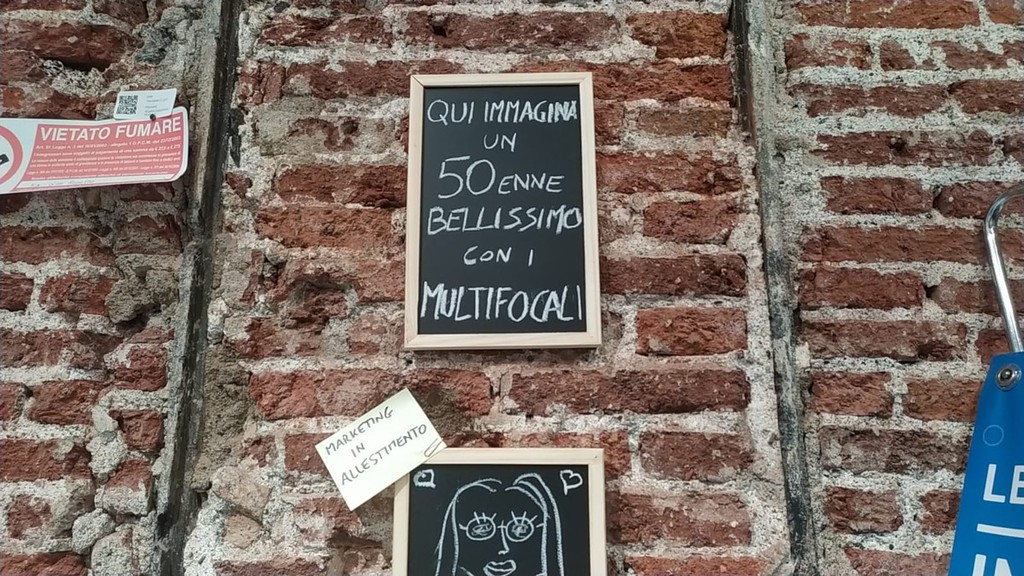 VIETATO FUMARE
QUI IMMAGINA
UN
50ENNE
BELLISSIMO
CON I
MULTIFOCALI
MARKETING
IN
ALLESTIMENTO
LE
IN